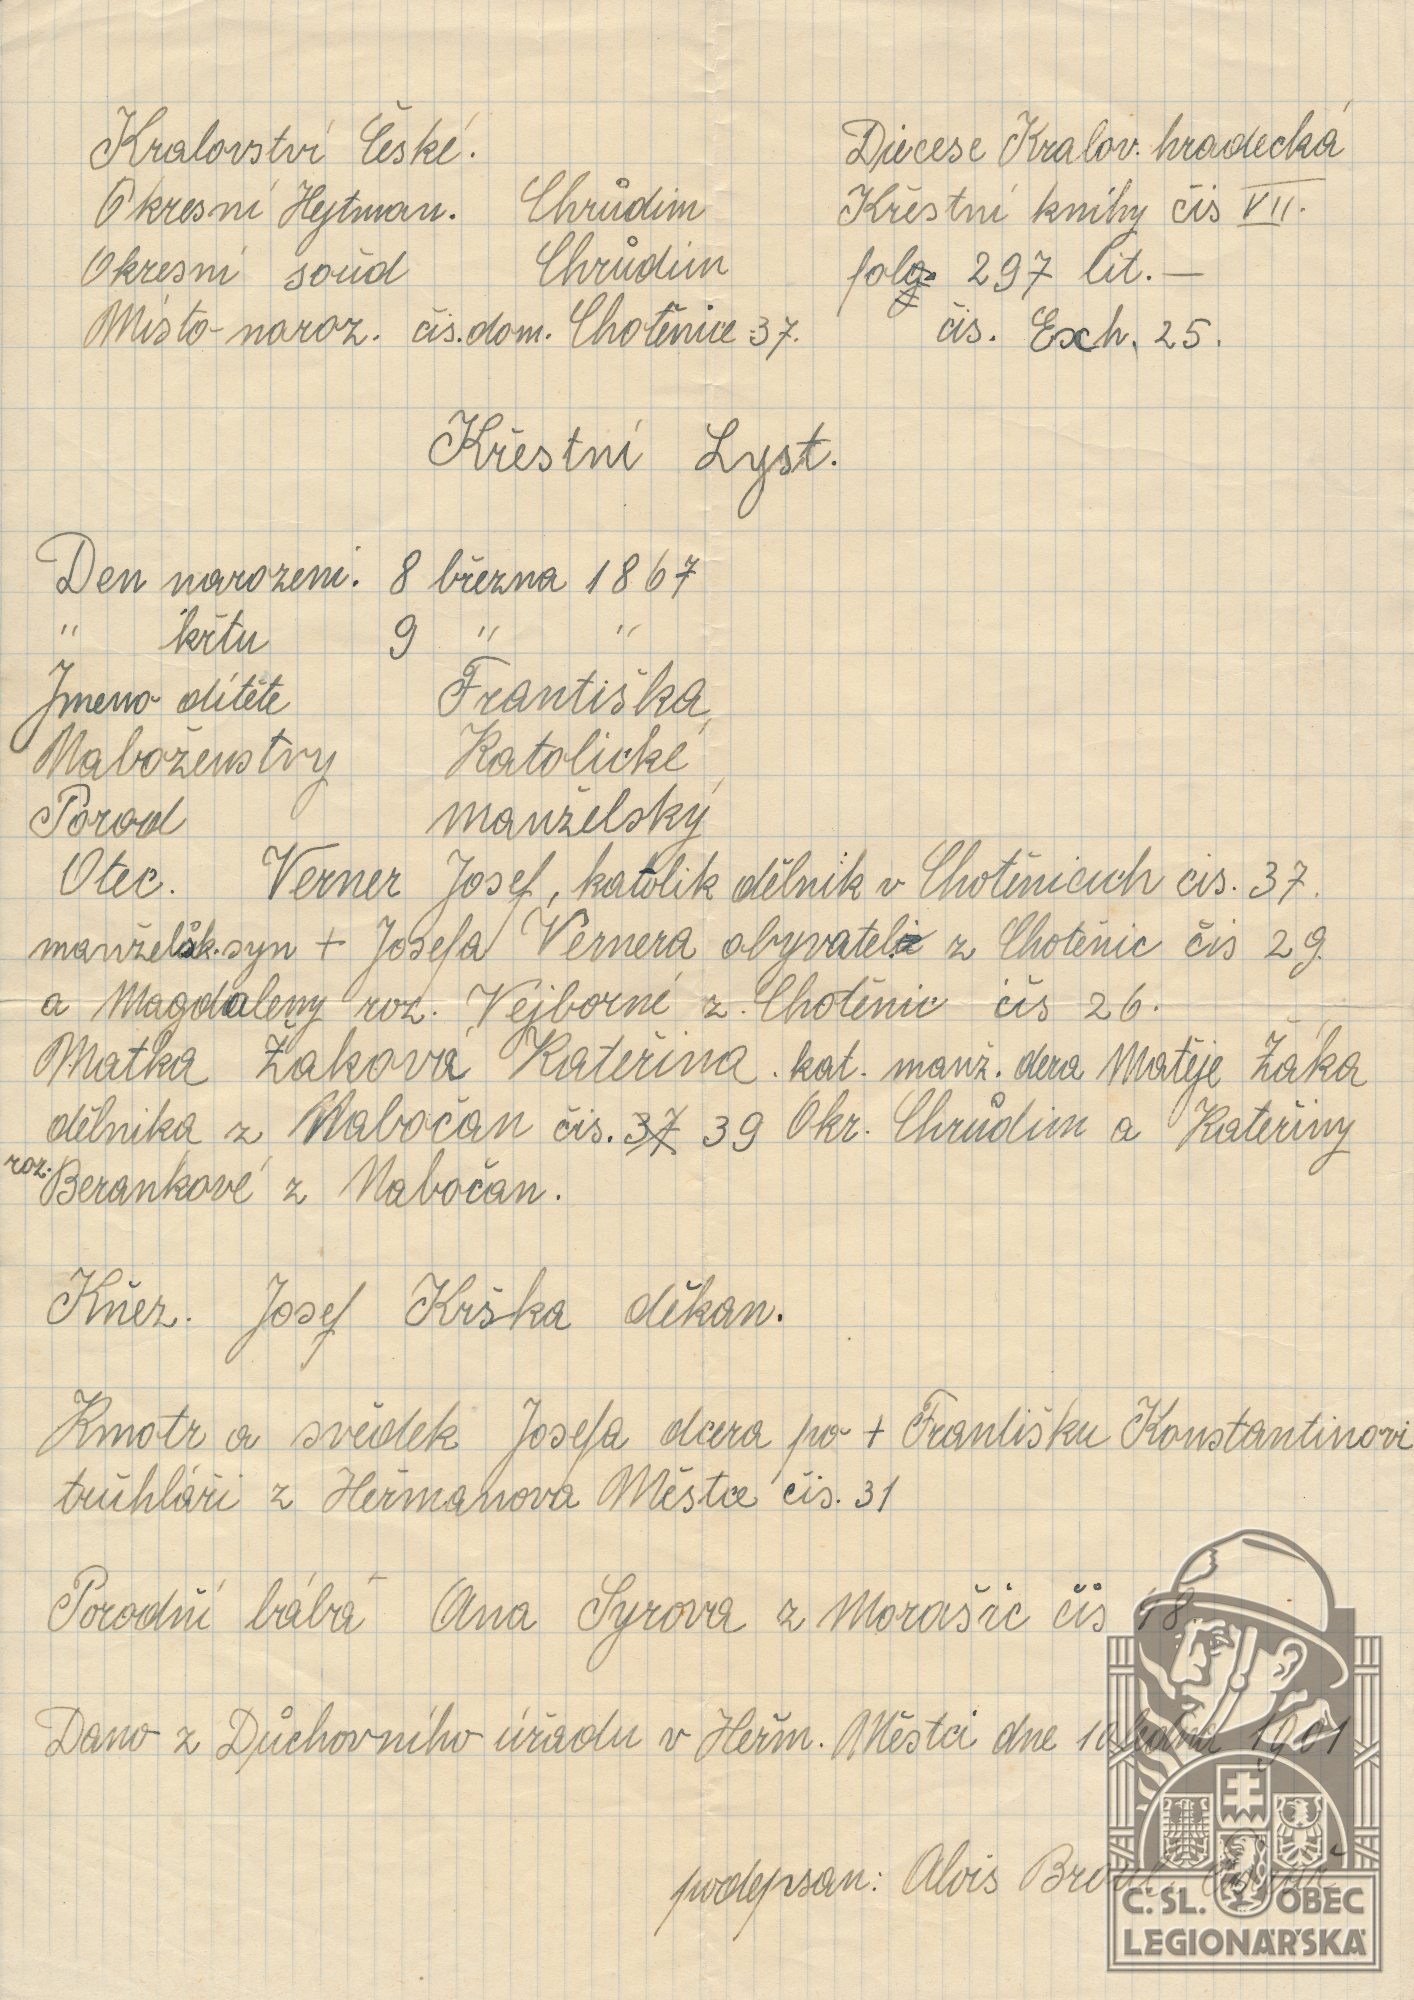 Kralovství České.
Diecese Kralov. hradecká
Okresní Hejtman. Chrůdim
Křestní knihy čis VII.
Okresní soúd Chrůdim
folg. 297 lit. —
Místo naroz. čis. dom. Chotěnice 37.
čis. Exh. 25.
Křestní Lyst.
Den narozeni. 8 března 1867
" křtu 9 " "
Jmeno dítěte Františka
Naboženstvy Katolické
Porod manželský
Otec. Verner Josef, katolik dělnik v Chotěnicich čis. 37.
manželsk. syn + Josefa Vernera obyvatele z Chotěnic čis 29.
a Magdaleny roz. Vejborné z. Chotěnic čis 26.
Matka Žaková Kateřina. kat. manž. dcra Matěje Žáka
dělnika z Nabočan čis. 37 39 Okr. Chrůdim a Kateřiny
roz. Berankové z Nabočan.
Kňez. Josef Krška děkan.
Kmotr a svědek Josefa dcera po + Františku Konstantinovi
trúhláři z Heřmanova Městce čis. 31
Porodňí bábá Ana Syrova z Morašic čis 18.
Dano z Důchovního úřadu v Heřm. Městci dne 10 ledna 1901
podepsan: Alois
Č. SL. OBEC
LEGIONÁŘSKÁ